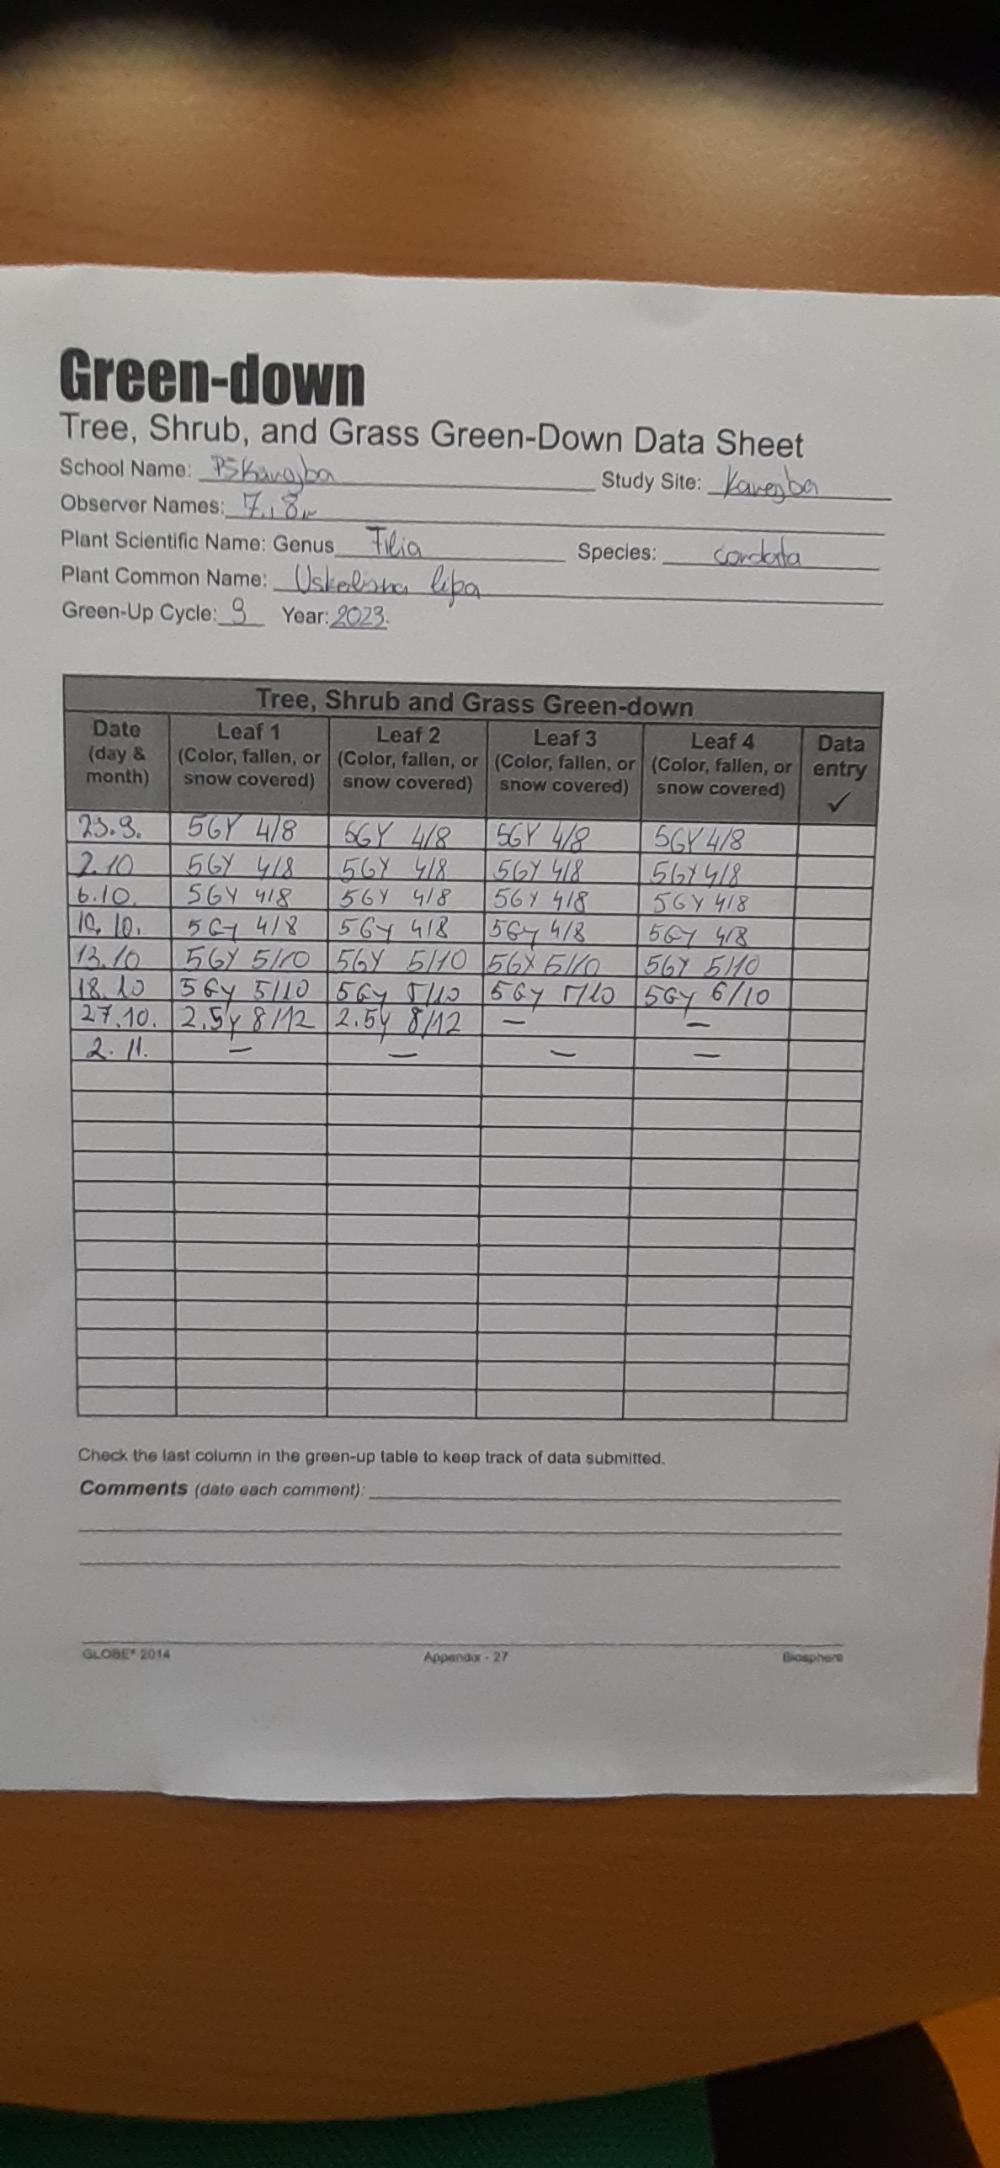 Green-down
Tree, Shrub, and Grass Green-Down Data Sheet
School Name: PŠ Kanegba Study Site: Kanegba
Observer Names: 7. i 8.
Plant Scientific Name: Genus Tilia Species: cordata
Plant Common Name: lipa
Green-Up Cycle: 9 Year: 2023.
Tree, Shrub and Grass Green-down
Date (day & month) Leaf 1 (Color, fallen, or snow covered) Leaf 2 (Color, fallen, or snow covered) Leaf 3 (Color, fallen, or snow covered) Leaf 4 (Color, fallen, or snow covered) Data entry ✓
5GY 4/8 5GY 4/8 5GY 4/8 5GY 4/8
2.10 5GY 4/8 5GY 4/8 5GY 4/8 5GY 4/8
6.10. 5GY 4/8 5GY 4/8 5GY 4/8 5GY 4/8
10. 10. 5Gy 4/8 5Gy 4/8 5Gy 4/8 5Gy 4/8
13.10 5GY 5/10 5GY 5/10 5GY 5/10 5GY 5/10
18.10 5Gy 5/10 5Gy 5/10 5Gy 5/10 5Gy 6/10
27.10. 2.5y 8/12 2.5y 8/12 – –
2. 11. – – – –
Check the last column in the green-up table to keep track of data submitted.
Comments (date each comment):
GLOBE® 2014 Appendix - 27 Biosphere